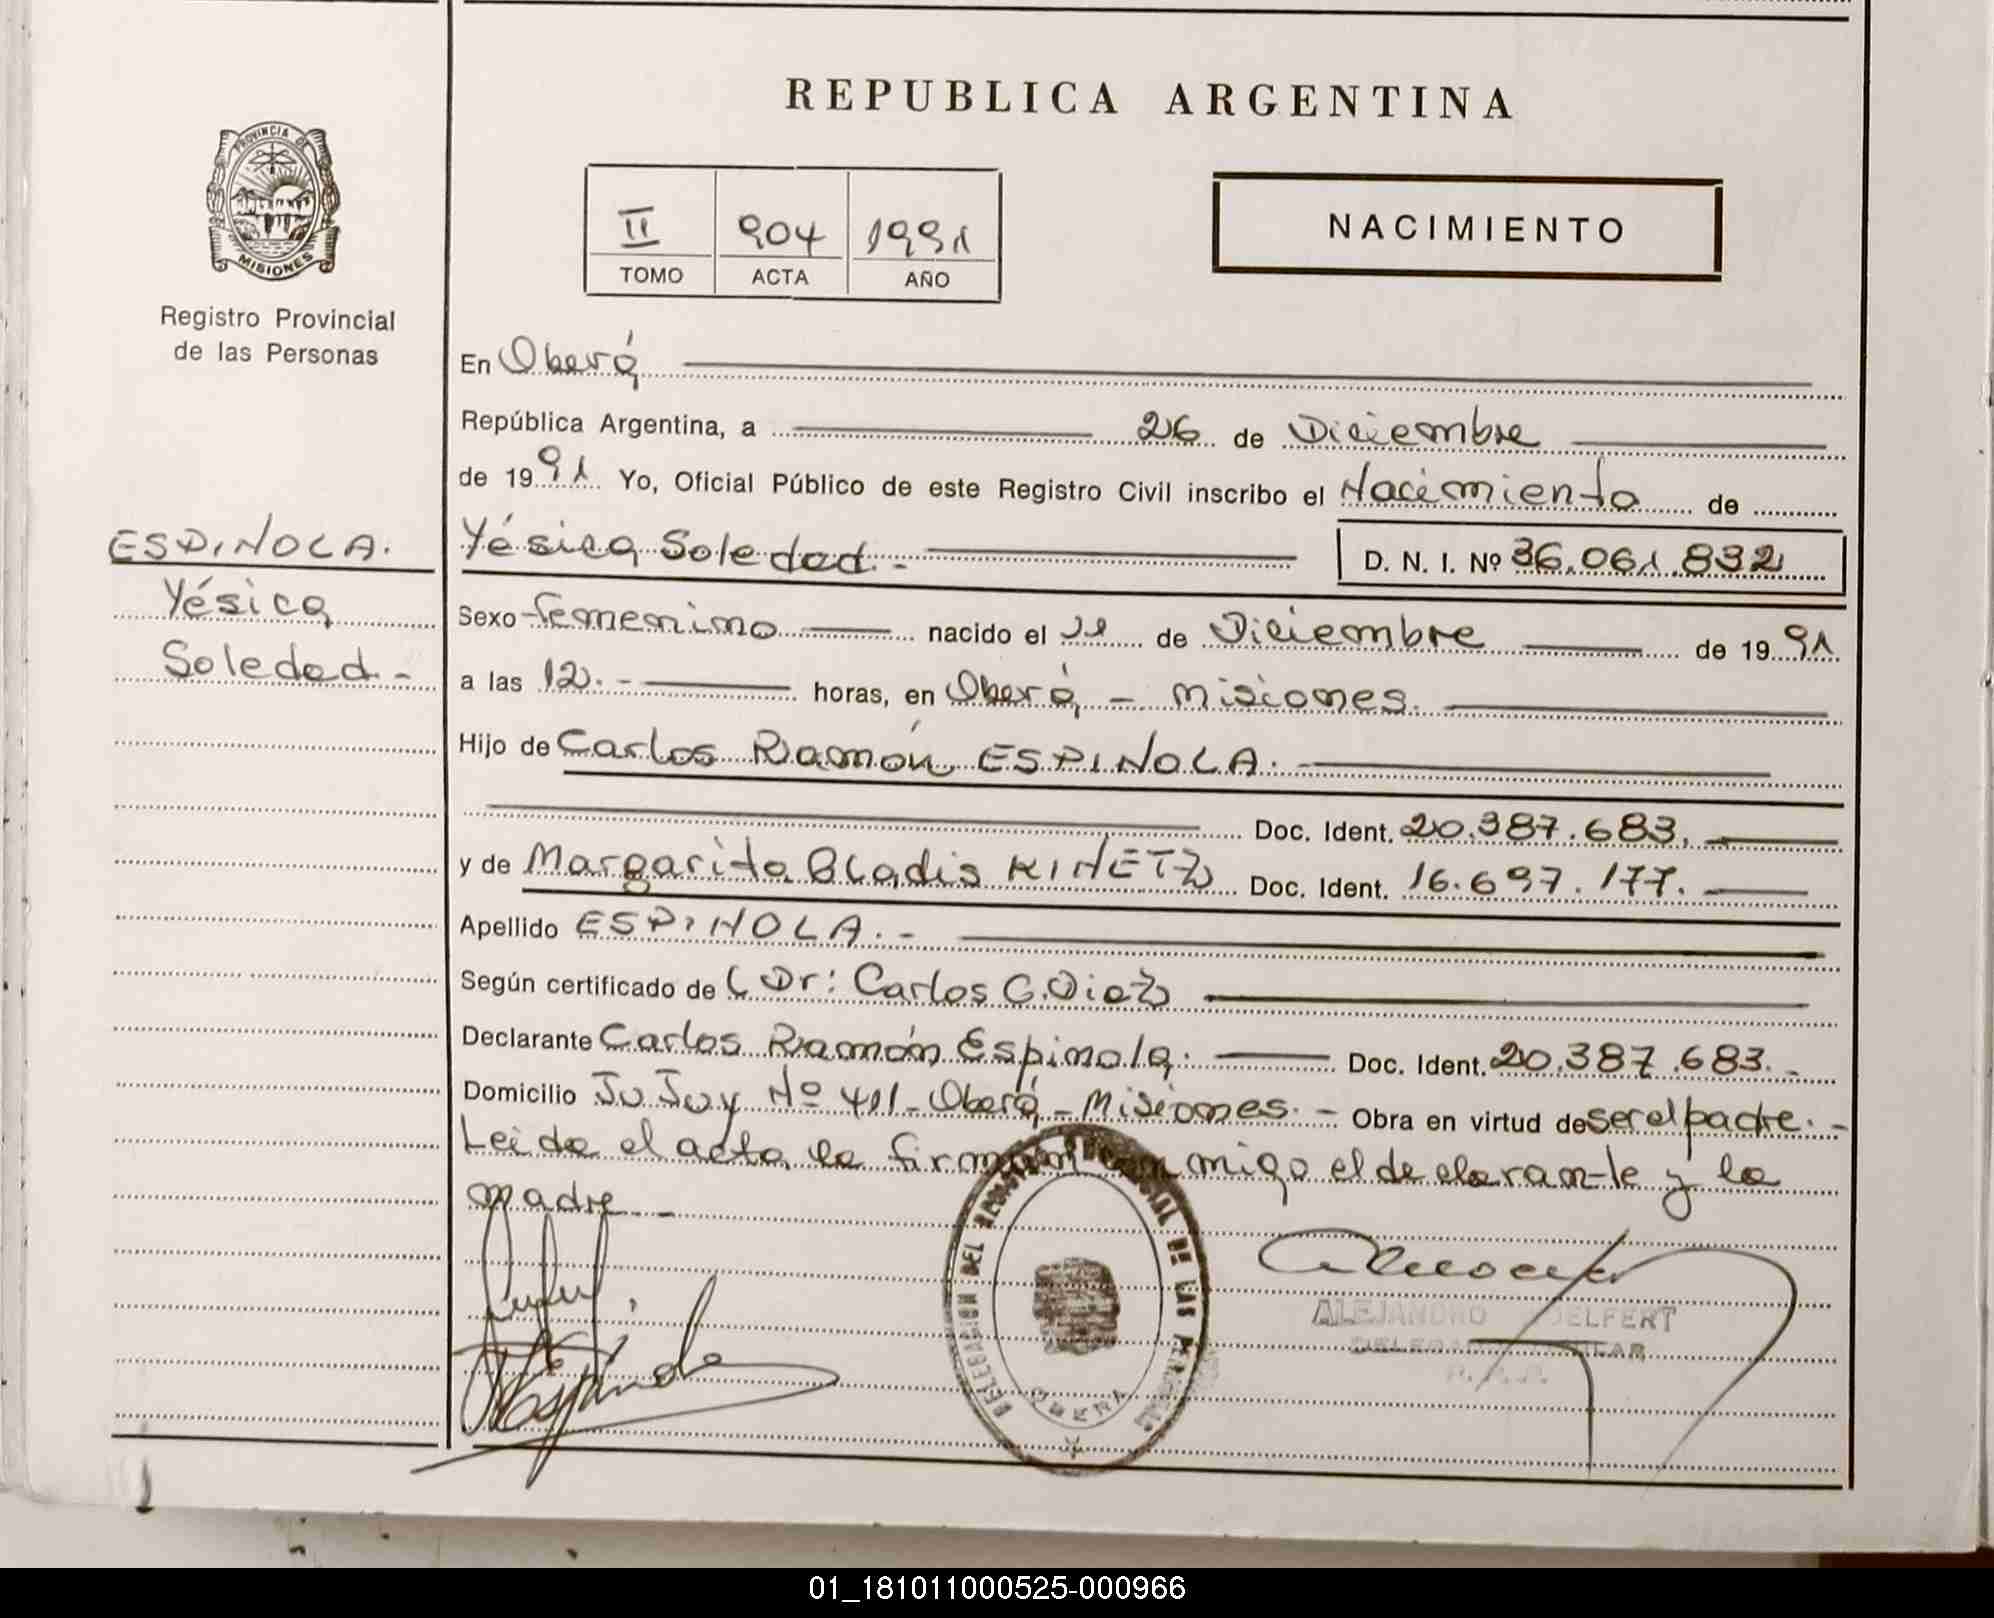 REPUBLICA ARGENTINA
PROVINCIA DE
MISIONES
Registro Provincial
de las Personas
II 904 1991
TOMO ACTA AÑO
NACIMIENTO
En Oberá
República Argentina, a 26 de Diciembre
de 1991 Yo, Oficial Público de este Registro Civil inscribo el Nacimiento de
Yésica Soledad.- D. N. I. Nº 36.061.832
ESPINOLA.
Yésica
Soledad.-
Sexo femenino nacido el de Diciembre de 1991
a las 12.- horas, en Oberá - Misiones.
Hijo de Carlos Ramón ESPINOLA.
Doc. Ident. 20.387.683.
y de Margarita Gladis KINETZ Doc. Ident. 16.697.177.
Apellido ESPINOLA.-
Según certificado de (Dr: Carlos C. Diez
Declarante Carlos Ramón Espinola. Doc. Ident. 20.387.683.-
Domicilio JuJuy Nº 411-Oberá-Misiones.- Obra en virtud de ser el padre.-
Leida el acta la firman con migo el declarante y la
madre.-
DELEGACION DEL REGISTRO PROVINCIAL DE LAS PERSONAS
OBERA
ALEJANDRO DELFERT
DELEGADO TITULAR
R.P.P.
01_181011000525-000966